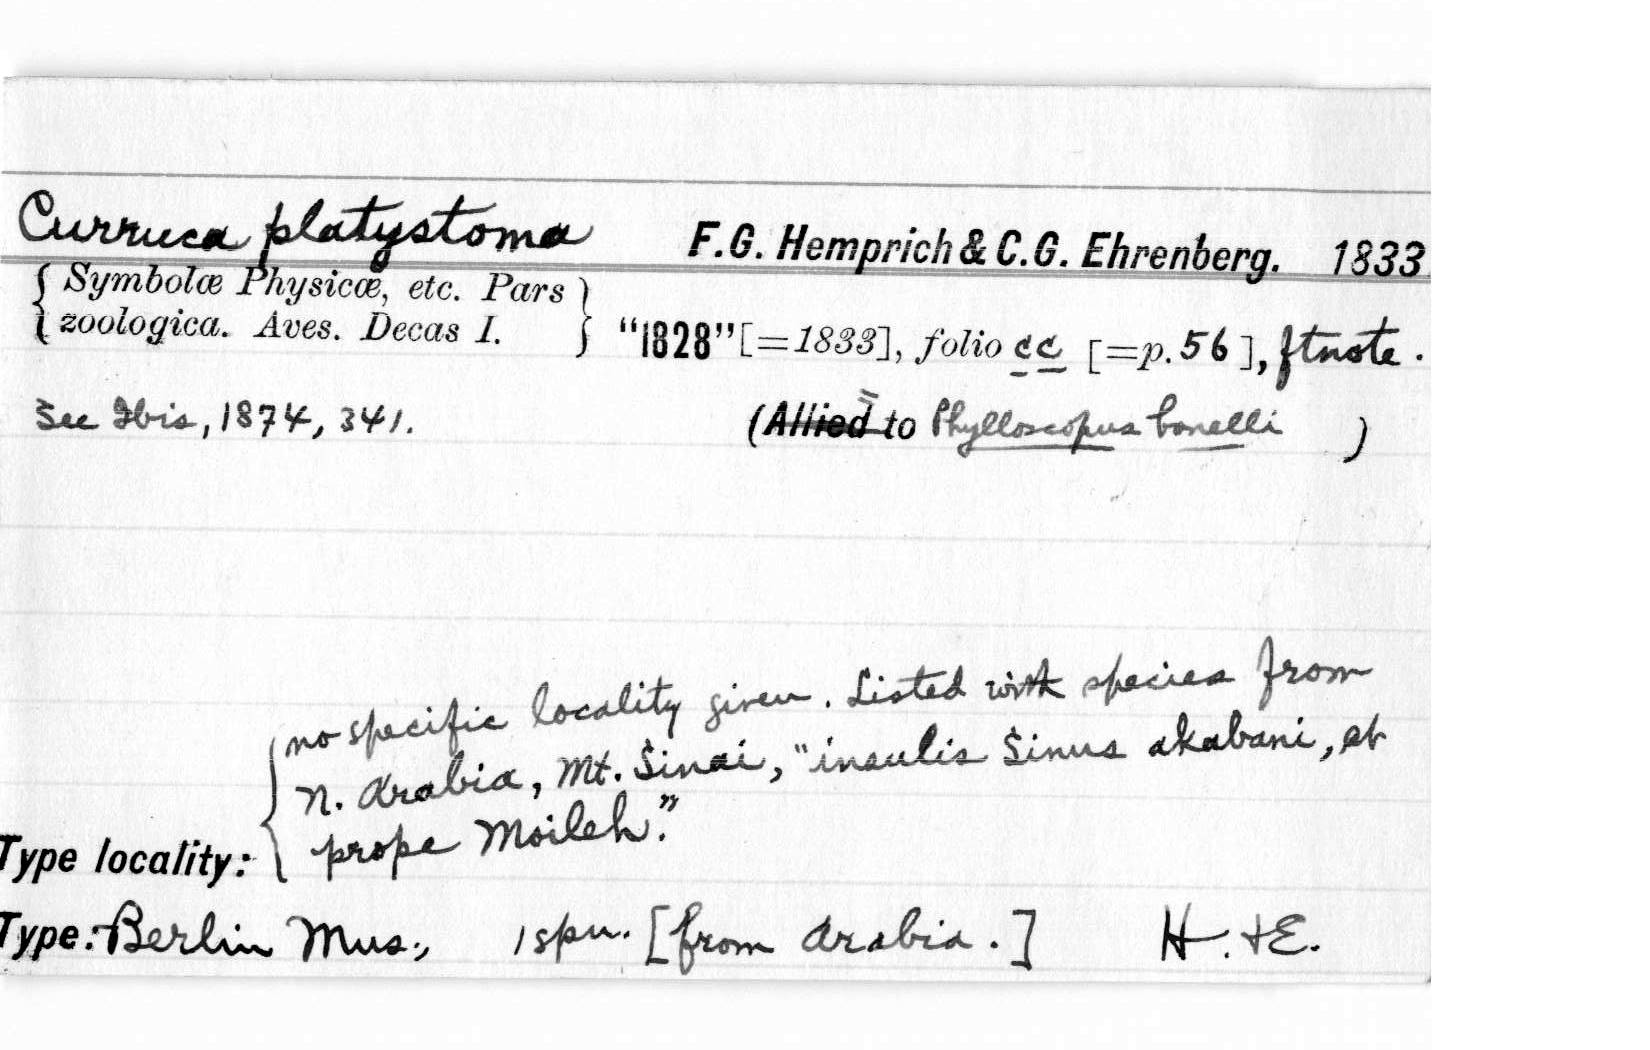 Curruca platystoma F.G. Hemprich & C.G. Ehrenberg. 1833
{ Symbolæ Physicæ, etc. Pars }
{ zoologica. Aves. Decas I. } "1828" [=1833], folio cc [=p. 56], ftnote.
See Ibis, 1874, 341. (Allied = to Phylloscopus bonelli )
no specific locality given. Listed with species from
N. Arabia, Mt. Sinai, "insulis Sinus akabani, et
prope Moileh."
Type locality:
Type: Berlin Mus., 1 spn. [from Arabia.] H. + E.